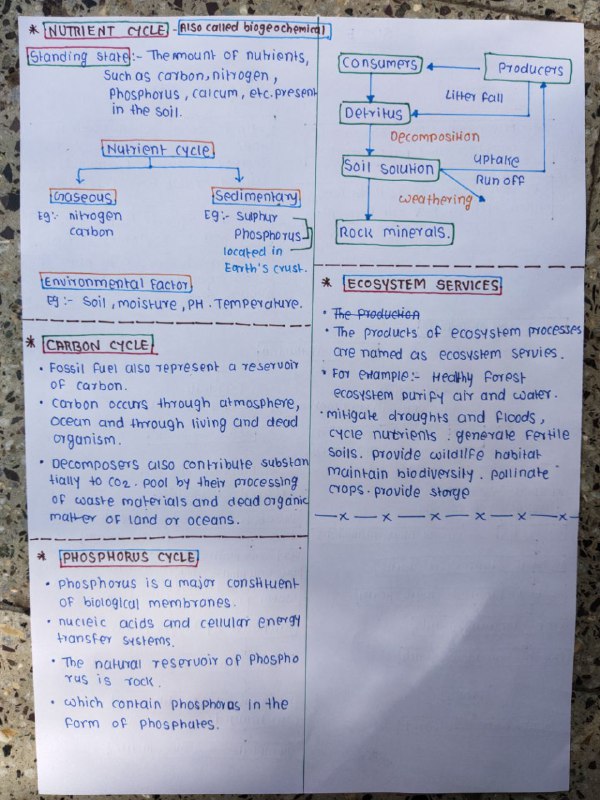 * NUTRIENT CYCLE - Also called biogeochemical
Standing state :- The amount of nutrients,
Such as carbon, nitrogen,
Phosphorus, calcum, etc. present
in the soil.
Nutrient cycle
Gaseous
Eg:- nitrogen
carbon
Sedimentary
Eg:- Sulphur
Phosphorus
located in
Earth's crust.
Environmental Factor
Eg :- Soil, moisture, PH. Temperature.
* CARBON CYCLE
• Fossil fuel also represent a reservoir
of carbon.
• Carbon occurs through atmosphere,
Ocean and through living and dead
organism.
• Decomposers also contribute substan
tially to CO2. pool by their processing
of waste materials and dead organic
matter of land or oceans.
* PHOSPHORUS CYCLE
• Phosphorus is a major constituent
of biological membranes.
• nucleic acids and cellular energy
transfer systems.
• The natural reservoir of phospho
rus is rock.
• which contain phosphoras in the
form of phosphates.
Consumers
Producers
Litter fall
Detritus
Decomposition
Soil solution
uptake
Run off
weathering
Rock minerals.
* ECOSYSTEM SERVICES
• The Production
• The products of ecosystem processes
are named as ecosystem servies.
• For example:- Healthy forest
ecosystem purify air and water.
• mitigate droughts and floods,
cycle nutrients. generate fertile
soils. provide wildlife habitat
maintain biodiversity. pollinate
crops. provide storge
—x—x—x—x—x—x—